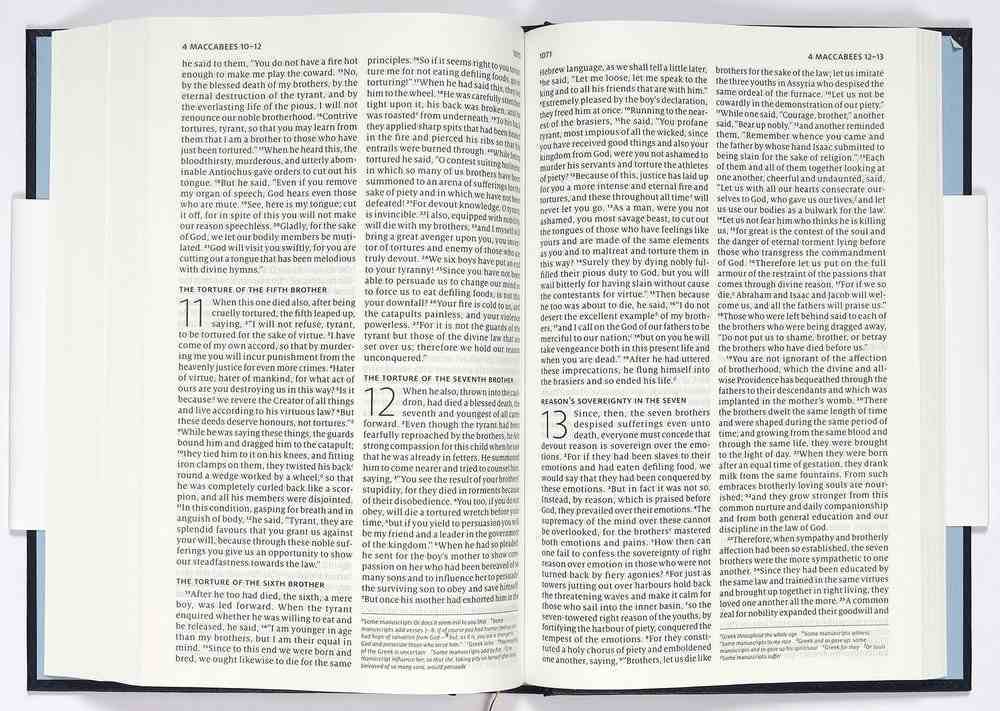 4 MACCABEES 10–12
he said to them, "You do not have a fire hot
enough to make me play the coward. ¹⁵No,
by the blessed death of my brothers, by the
eternal destruction of the tyrant, and by
the everlasting life of the pious, I will not
renounce our noble brotherhood. ¹⁶Contrive
tortures, tyrant, so that you may learn from
them that I am a brother to those who have
just been tortured." ¹⁷When he heard this, the
bloodthirsty, murderous, and utterly abom-
inable Antiochus gave orders to cut out his
tongue. ¹⁸But he said, "Even if you remove
my organ of speech, God hears even those
who are mute. ¹⁹See, here is my tongue; cut
it off, for in spite of this you will not make
our reason speechless. ²⁰Gladly, for the sake
of God, we let our bodily members be muti-
lated. ²¹God will visit you swiftly, for you are
cutting out a tongue that has been melodious
with divine hymns."
THE TORTURE OF THE FIFTH BROTHER
11 When this one died also, after being
cruelly tortured, the fifth leaped up,
saying, ²"I will not refuse, tyrant,
to be tortured for the sake of virtue. ³I have
come of my own accord, so that by murder-
ing me you will incur punishment from the
heavenly justice for even more crimes. ⁴Hater
of virtue, hater of mankind, for what act of
ours are you destroying us in this way? ⁵Is it
because we revere the Creator of all things
and live according to his virtuous law? ⁶But
these deeds deserve honours, not tortures."
⁹While he was saying these things, the guards
bound him and dragged him to the catapult;
¹⁰they tied him to it on his knees, and fitting
iron clamps on them, they twisted his back
round a wedge worked by a wheel, so that
he was completely curled back like a scor-
pion, and all his members were disjointed.
¹¹In this condition, gasping for breath and in
anguish of body, ¹²he said, "Tyrant, they are
splendid favours that you grant us against
your will, because through these noble suf-
ferings you give us an opportunity to show
our steadfastness towards the law."
THE TORTURE OF THE SIXTH BROTHER
¹³After he too had died, the sixth, a mere
boy, was led forward. When the tyrant
enquired whether he was willing to eat and
be released, he said, ¹⁴"I am younger in age
than my brothers, but I am their equal in
mind. ¹⁵Since to this end we were born and
bred, we ought likewise to die for the same
principles. ¹⁶So if it seems right to you
ture me for not eating defiling foods,
torturing!" ¹⁷When he had said this, they
him to the wheel. ¹⁸He was carefully stretched
tight upon it, his back was broken, and
was roasted from underneath. ¹⁹To his back
they applied sharp spits that had been
in the fire and pierced his ribs so that
entrails were burned through. ²⁰While being
tortured he said, "O contest suiting
in which so many of us brothers have been
summoned to an arena of sufferings for the
sake of piety and in which we have not been
defeated! ²¹For devout knowledge, O tyrant,
is invincible. ²²I also, equipped with
will die with my brothers, ²³and I myself
bring a great avenger upon you, you
tor of tortures and enemy of those who
truly devout. ²⁴We six boys have
to your tyranny! ²⁵Since you have not been
able to persuade us to change our mind
to force us to eat defiling foods, is not
your downfall? ²⁶Your fire is cold to us,
the catapults painless, and your violence
powerless. ²⁷For it is not the guards of
tyrant but those of the divine law that are
set over us; therefore we hold our reason
unconquered."
THE TORTURE OF THE SEVENTH BROTHER
12 When he also, thrown into the caul-
dron, had died a blessed death, the
seventh and youngest of all came
forward. ²Even though the tyrant had been
fearfully reproached by the brothers, he felt
strong compassion for this child when he saw
that he was already in fetters. He summoned
him to come nearer and tried to counsel him,
saying, ³"You see the result of your brothers'
stupidity, for they died in torments because
of their disobedience. ⁴You too, if you do not
obey, will die a tortured wretch before your
time, ⁵but if you yield to persuasion you will
be my friend and a leader in the government
of the kingdom." ⁶When he had so pleaded,
he sent for the boy's mother to show com-
passion on her who had been bereaved of so
many sons and to influence her to persuade
the surviving son to obey and save himself.
⁷But once his mother had exhorted him in the
Some manuscripts Or does it seem ill to you that Some
manuscripts add verses 7–8:
had hope of salvation from God—⁸but, as it is, you are a
God and persecute those who serve him.
of the Greek is uncertain
manuscript influence her, so that she, taking pity on herself after
bereaved of so many sons, would persuade
1071
4 MACCABEES 12–13
Hebrew language, as we shall tell a little later,
⁸he said, "Let me loose, let me speak to the
king and to all his friends that are with him."
⁹Extremely pleased by the boy's declaration,
they freed him at once. ¹⁰Running to the near-
est of the brasiers, ¹¹he said, "You profane
tyrant, most impious of all the wicked, since
you have received good things and also your
kingdom from God, were you not ashamed to
murder his servants and torture the athletes
of piety? ¹²Because of this, justice has laid up
for you a more intense and eternal fire and
tortures, and these throughout all time will
never let you go. ¹³As a man, were you not
ashamed, you most savage beast, to cut out
the tongues of those who have feelings like
yours and are made of the same elements
as you and to maltreat and torture them in
this way? ¹⁴Surely they by dying nobly ful-
filled their pious duty to God, but you will
wail bitterly for having slain without cause
the contestants for virtue." ¹⁵Then because
he too was about to die, he said, ¹⁶"I do not
desert the excellent example of my broth-
ers, ¹⁷and I call on the God of our fathers to be
merciful to our nation; ¹⁸but on you he will
take vengeance both in this present life and
when you are dead." ¹⁹After he had uttered
these imprecations, he flung himself into
the brasiers and so ended his life.
REASON'S SOVEREIGNTY IN THE SEVEN
13 Since, then, the seven brothers
despised sufferings even unto
death, everyone must concede that
devout reason is sovereign over the emo-
tions. ²For if they had been slaves to their
emotions and had eaten defiling food, we
would say that they had been conquered by
these emotions. ³But in fact it was not so.
Instead, by reason, which is praised before
God, they prevailed over their emotions. ⁴The
supremacy of the mind over these cannot
be overlooked, for the brothers mastered
both emotions and pains. ⁵How then can
one fail to confess the sovereignty of right
reason over emotion in those who were not
turned back by fiery agonies? ⁶For just as
towers jutting out over harbours hold back
the threatening waves and make it calm for
those who sail into the inner basin, ⁷so the
seven-towered right reason of the youths, by
fortifying the harbour of piety, conquered the
tempest of the emotions. ⁸For they consti-
tuted a holy chorus of piety and emboldened
one another, saying, ⁹"Brothers, let us die like
brothers for the sake of the law; let us imitate
the three youths in Assyria who despised the
same ordeal of the furnace. ¹⁰Let us not be
cowardly in the demonstration of our piety."
¹¹While one said, "Courage, brother," another
said, "Bear up nobly," ¹²and another reminded
them, "Remember whence you came and
the father by whose hand Isaac submitted to
being slain for the sake of religion." ¹³Each
of them and all of them together looking at
one another, cheerful and undaunted, said,
"Let us with all our hearts consecrate our-
selves to God, who gave us our lives, and let
us use our bodies as a bulwark for the law.
¹⁴Let us not fear him who thinks he is killing
us, ¹⁵for great is the contest of the soul and
the danger of eternal torment lying before
those who transgress the commandment
of God. ¹⁶Therefore let us put on the full
armour of the restraint of the passions that
comes through divine reason. ¹⁷For if we so
die, Abraham and Isaac and Jacob will wel-
come us, and all the fathers will praise us."
¹⁸Those who were left behind said to each of
the brothers who were being dragged away,
"Do not put us to shame, brother, or betray
the brothers who have died before us."
¹⁹You are not ignorant of the affection
of brotherhood, which the divine and all-
wise Providence has bequeathed through the
fathers to their descendants and which was
implanted in the mother's womb. ²⁰There
the brothers dwelt the same length of time
and were shaped during the same period of
time; and growing from the same blood and
through the same life, they were brought
to the light of day. ²¹When they were born
after an equal time of gestation, they drank
milk from the same fountains. From such
embraces brotherly loving souls are nour-
ished; ²²and they grow stronger from this
common nurture and daily companionship
and from both general education and our
discipline in the law of God.
²³Therefore, when sympathy and brotherly
affection had been so established, the seven
brothers were the more sympathetic to one
another. ²⁴Since they had been educated by
the same law and trained in the same virtues
and brought up together in right living, they
loved one another all the more. ²⁵A common
zeal for nobility expanded their goodwill and
Greek throughout the whole age Some manuscripts witness
Some manuscripts to my race Greek and so gave up; some
manuscripts and so gave up his spirit/soul Greek for they Or souls
Some manuscripts suffer